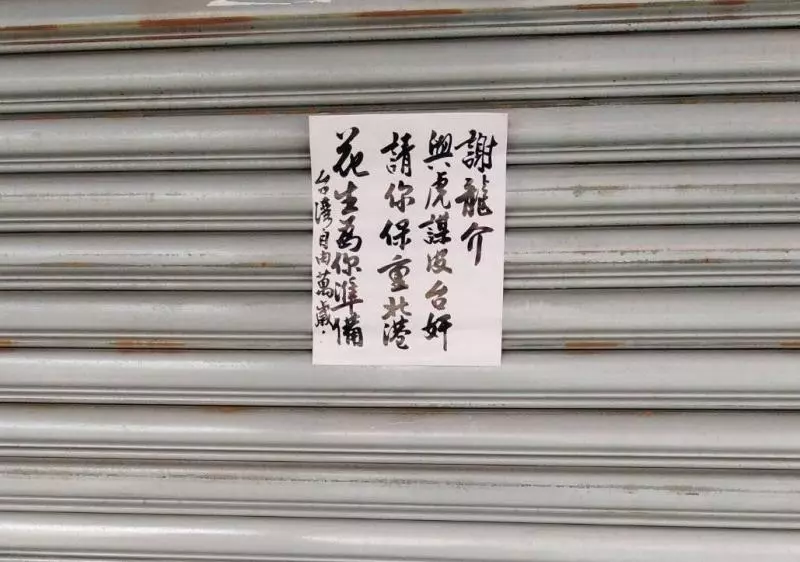 謝龍介
與虎謀皮台奸
請你保重北港
花生為你準備
台灣自由萬歲.